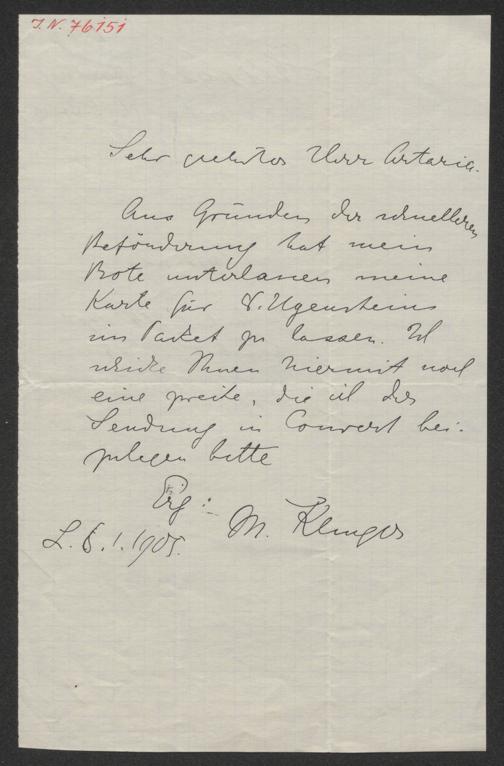 I.N. 76151
Sehr geehrter Herr Artaria.
Aus Gründen der schnelleren
Beförderung hat mein
Bote unterlassen meine
Karte für
im Packet zu lassen. Ich
schicke Ihnen hiermit noch
eine zweite, die ich der
Sendung in Couvert bei-
zulegen bitte
Erg:
M. Klinger
L. 6.1.1905.